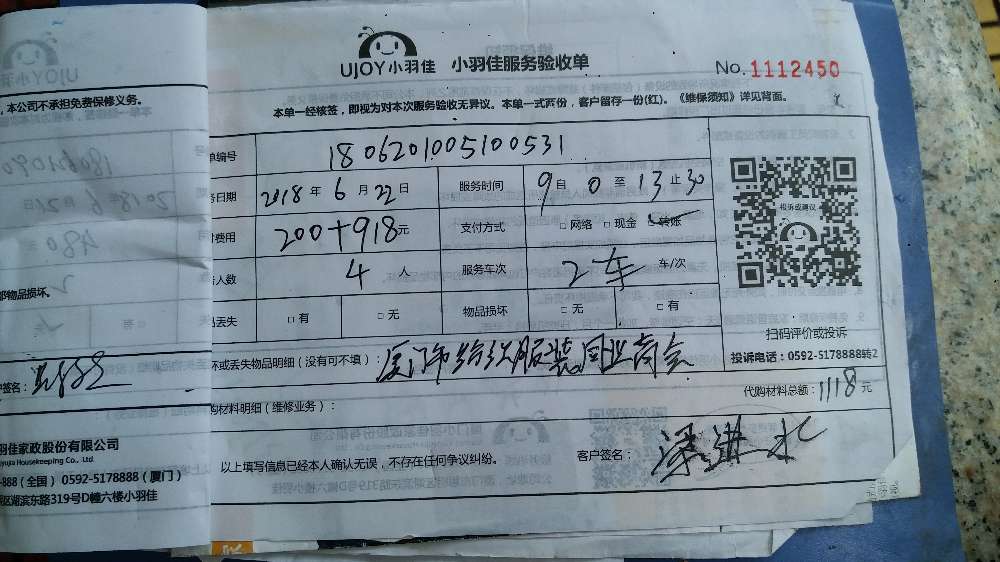 UJOY小羽佳 小羽佳服务验收单
No. 1112450
本单一经核签,即视为对本次服务验收无异议。本单一式两份,客户留存一份(红)。《维保须知》详见背面。
单编号 1806201005100531
务日期 2018年6月22日 服务时间 9自0至13止30
费用 200+918元 支付方式 □网络 □现金 □转账
人数 4人 服务车次 2车 车/次
丢失 □有 □无 物品损坏 □无 □有
坏或丢失物品明细(没有可不填): 厦门市纺织服装同业商会
代购材料总额:1118元
购材料明细(维修业务):
以上填写信息已经本人确认无误,不存在任何争议纠纷。
客户签名:
投诉或建议
扫码评价或投诉
投诉电话:0592-5178888转2
UJOY
,本公司不承担免费保修义务。
部物品损坏。
签名:
羽佳家政股份有限公司
oyujia Housekeeping Co., Ltd.
-888(全国) 0592-5178888(厦门)
区湖滨东路319号D幢六楼小羽佳